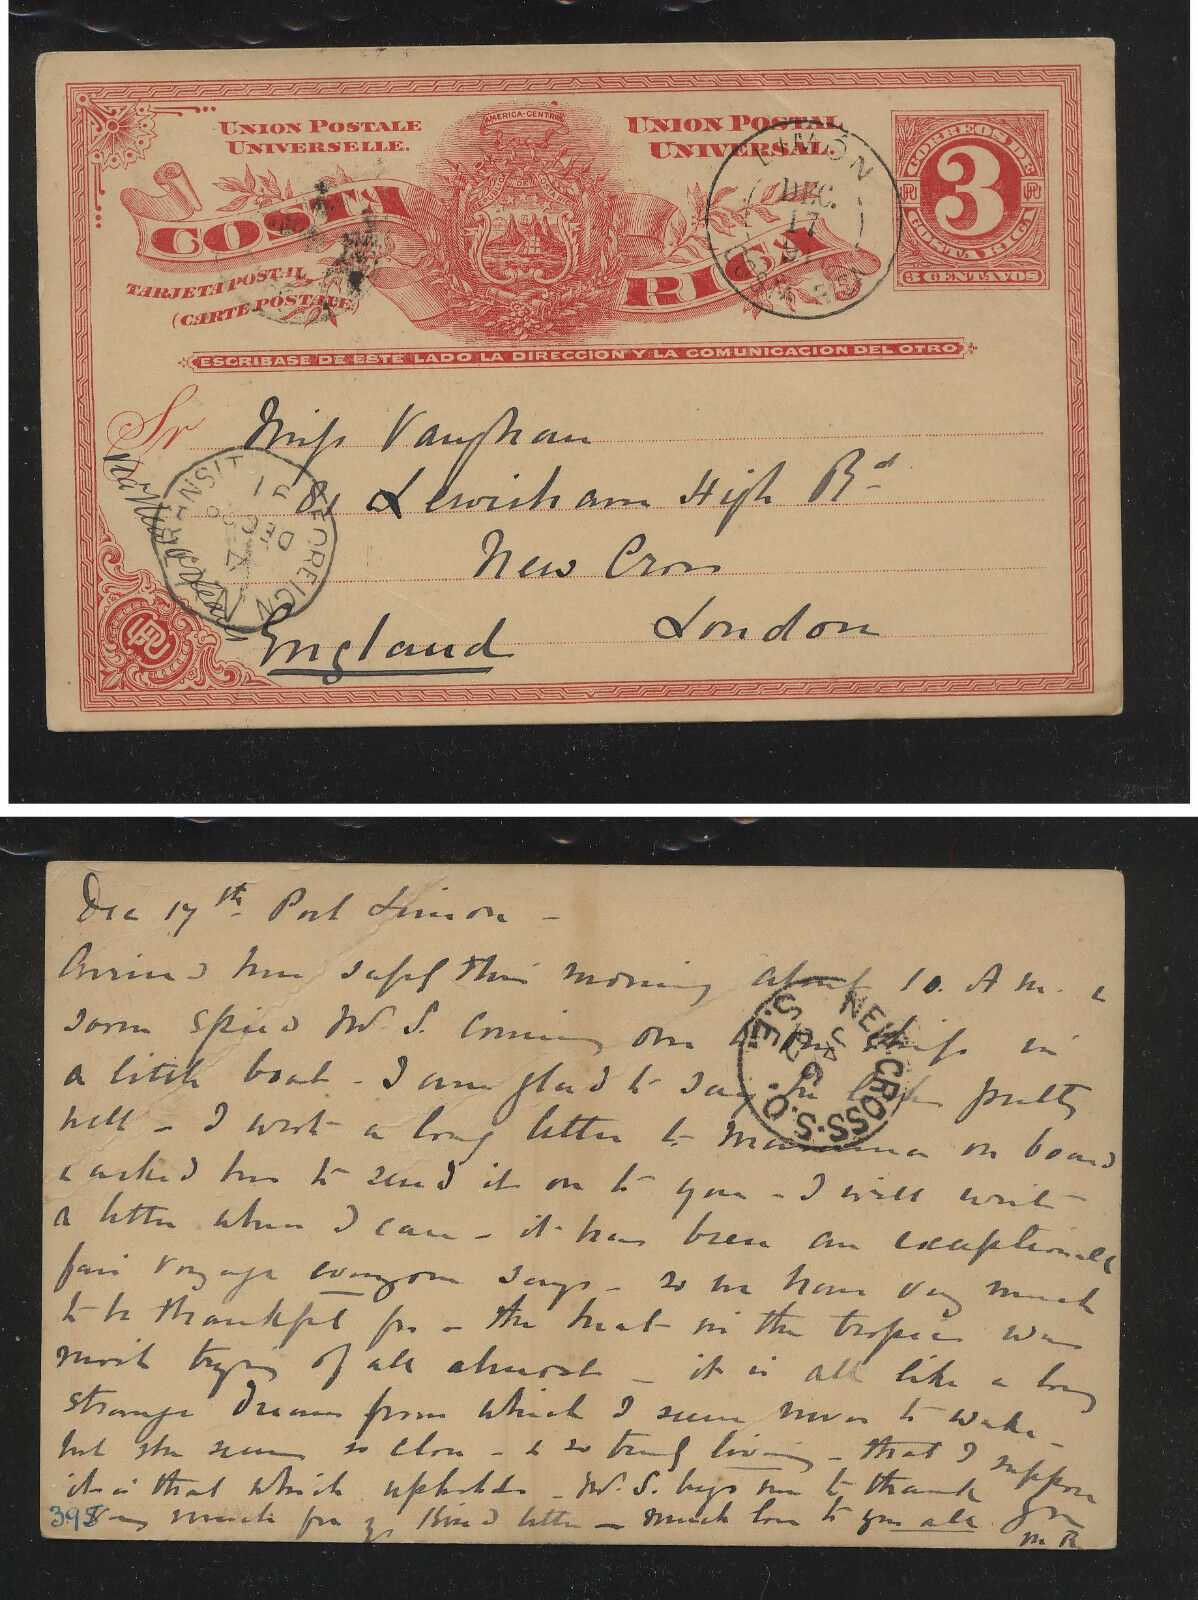 UNION POSTALE
UNIVERSELLE.
AMERICA-CENTRAL
UNION POSTAL
UNIVERSAL.
CORREOS DE
3
COSTA RICA
3 CENTAVOS
LIMON
DEC.
17
COSTA RICA
COSTA RICA
TARJETA POSTAL
(CARTE POSTALE)
ESCRIBASE DE ESTE LADO LA DIRECCION Y LA COMUNICACION DEL OTRO
Sr Miss Vaughan
81 Lewisham High Rd
New Cross
London
England
via New Orleans
FOREIGN TRANSIT
DEC
UPU
Dec 17th Port Limon -
Arrived here safely this morning about 10. A m. &
soon spied W. S. coming over to our ship in
a little boat - I am glad to say he looks pretty
well - I wrote a long letter to Mamma on board
& asked her to send it on to you - I will write
a letter when I can - it has been an exceptionally
fair voyage everyone says - so we have very much
to be thankful for - the heat in the tropics was
most trying of all almost - it is all like a long
strange dream from which I seem never to wake -
but she seems so close - & so truly living - that I suppose
it is that which upholds - W. S. begs me to thank you
very much for yr kind letter - much love to you all
M R
395
NEW CROSS S.O.
S.E.
JA 6